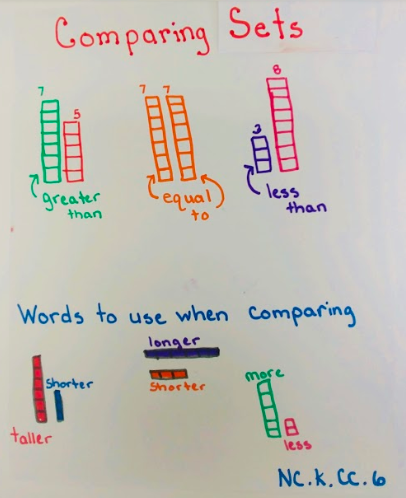 Comparing Sets
7
5
greater
than
7 7
equal
to
3
8
less
than
Words to use when comparing
shorter
taller
longer
shorter
more
less
NC.K.CC.6